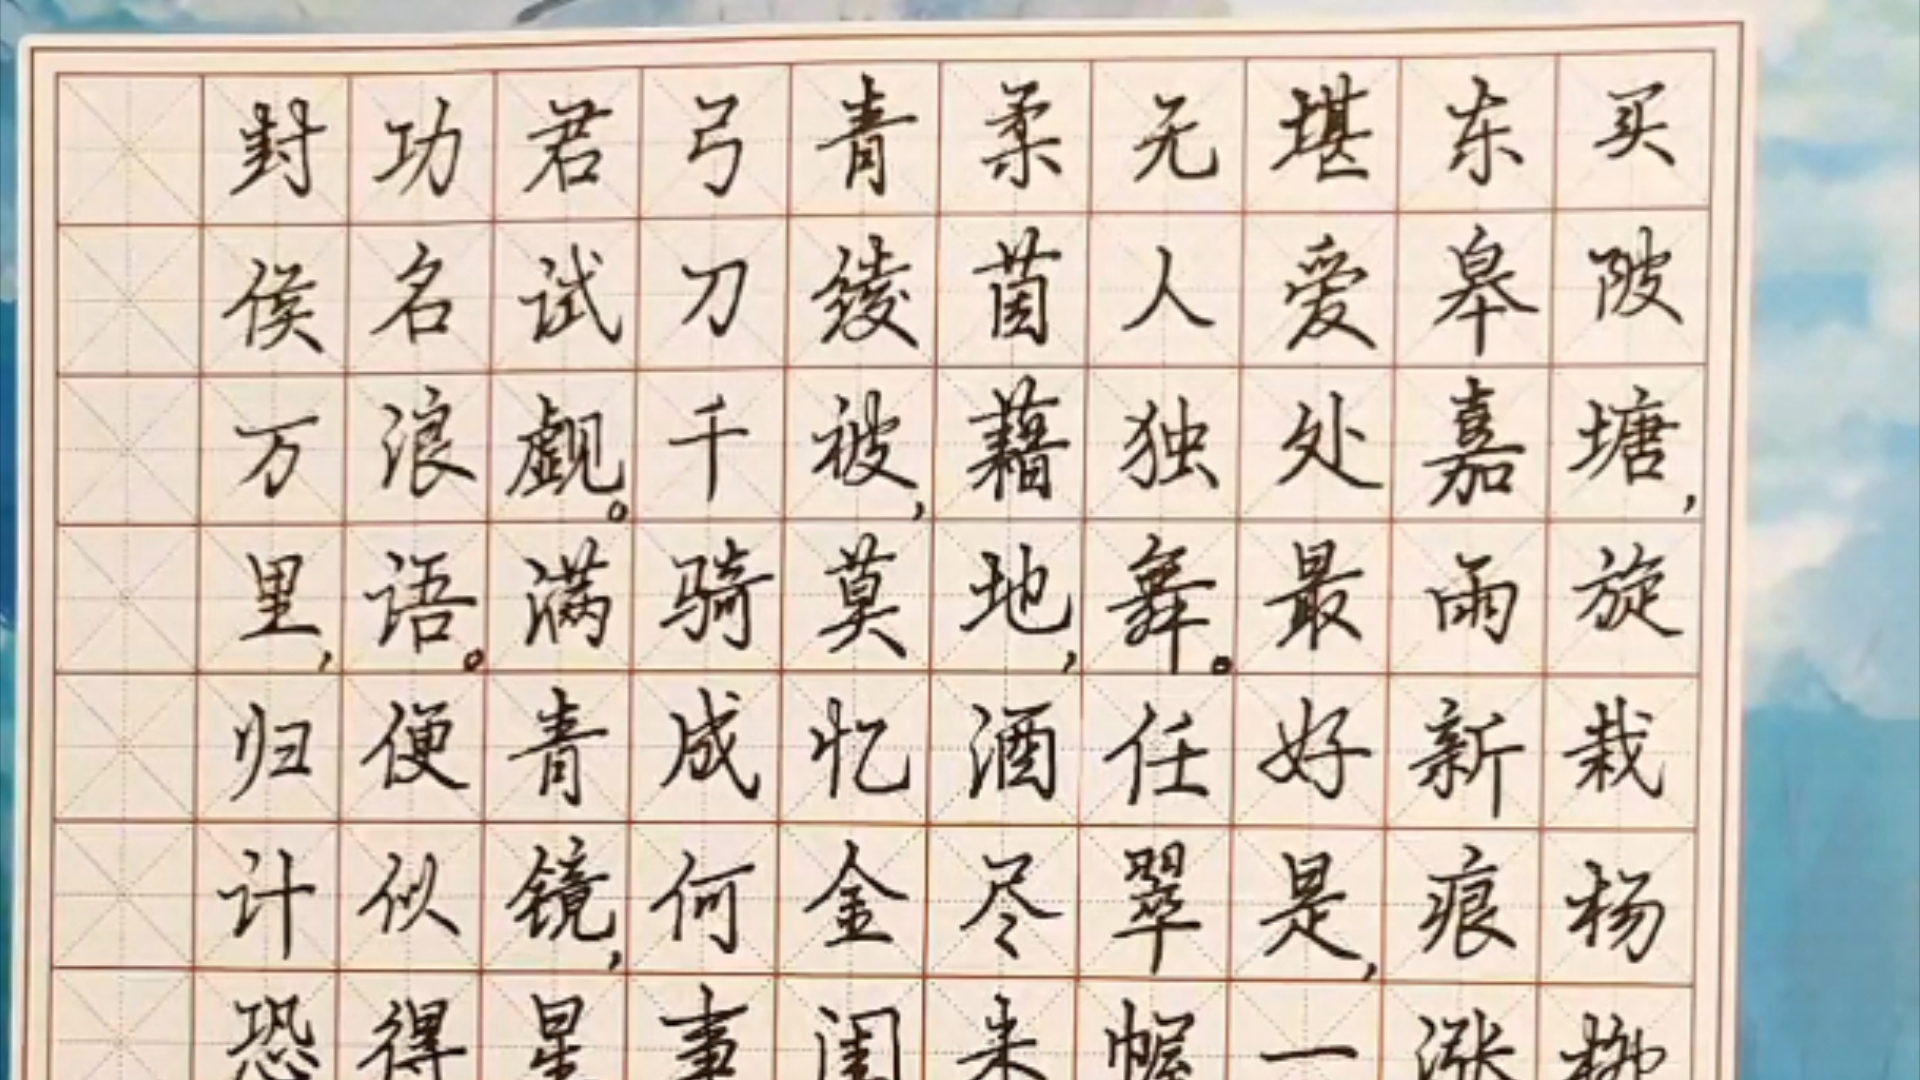 买陂塘,旋栽杨柳
东皋嘉雨新痕涨
堪爱处最好是,一
无人独舞。任翠幄
柔茵藉地,酒尽来
青绫被,莫忆金闺
弓刀千骑成何事
君试觑。满青镜,星
功名浪语。便似得
封侯万里,归计恐